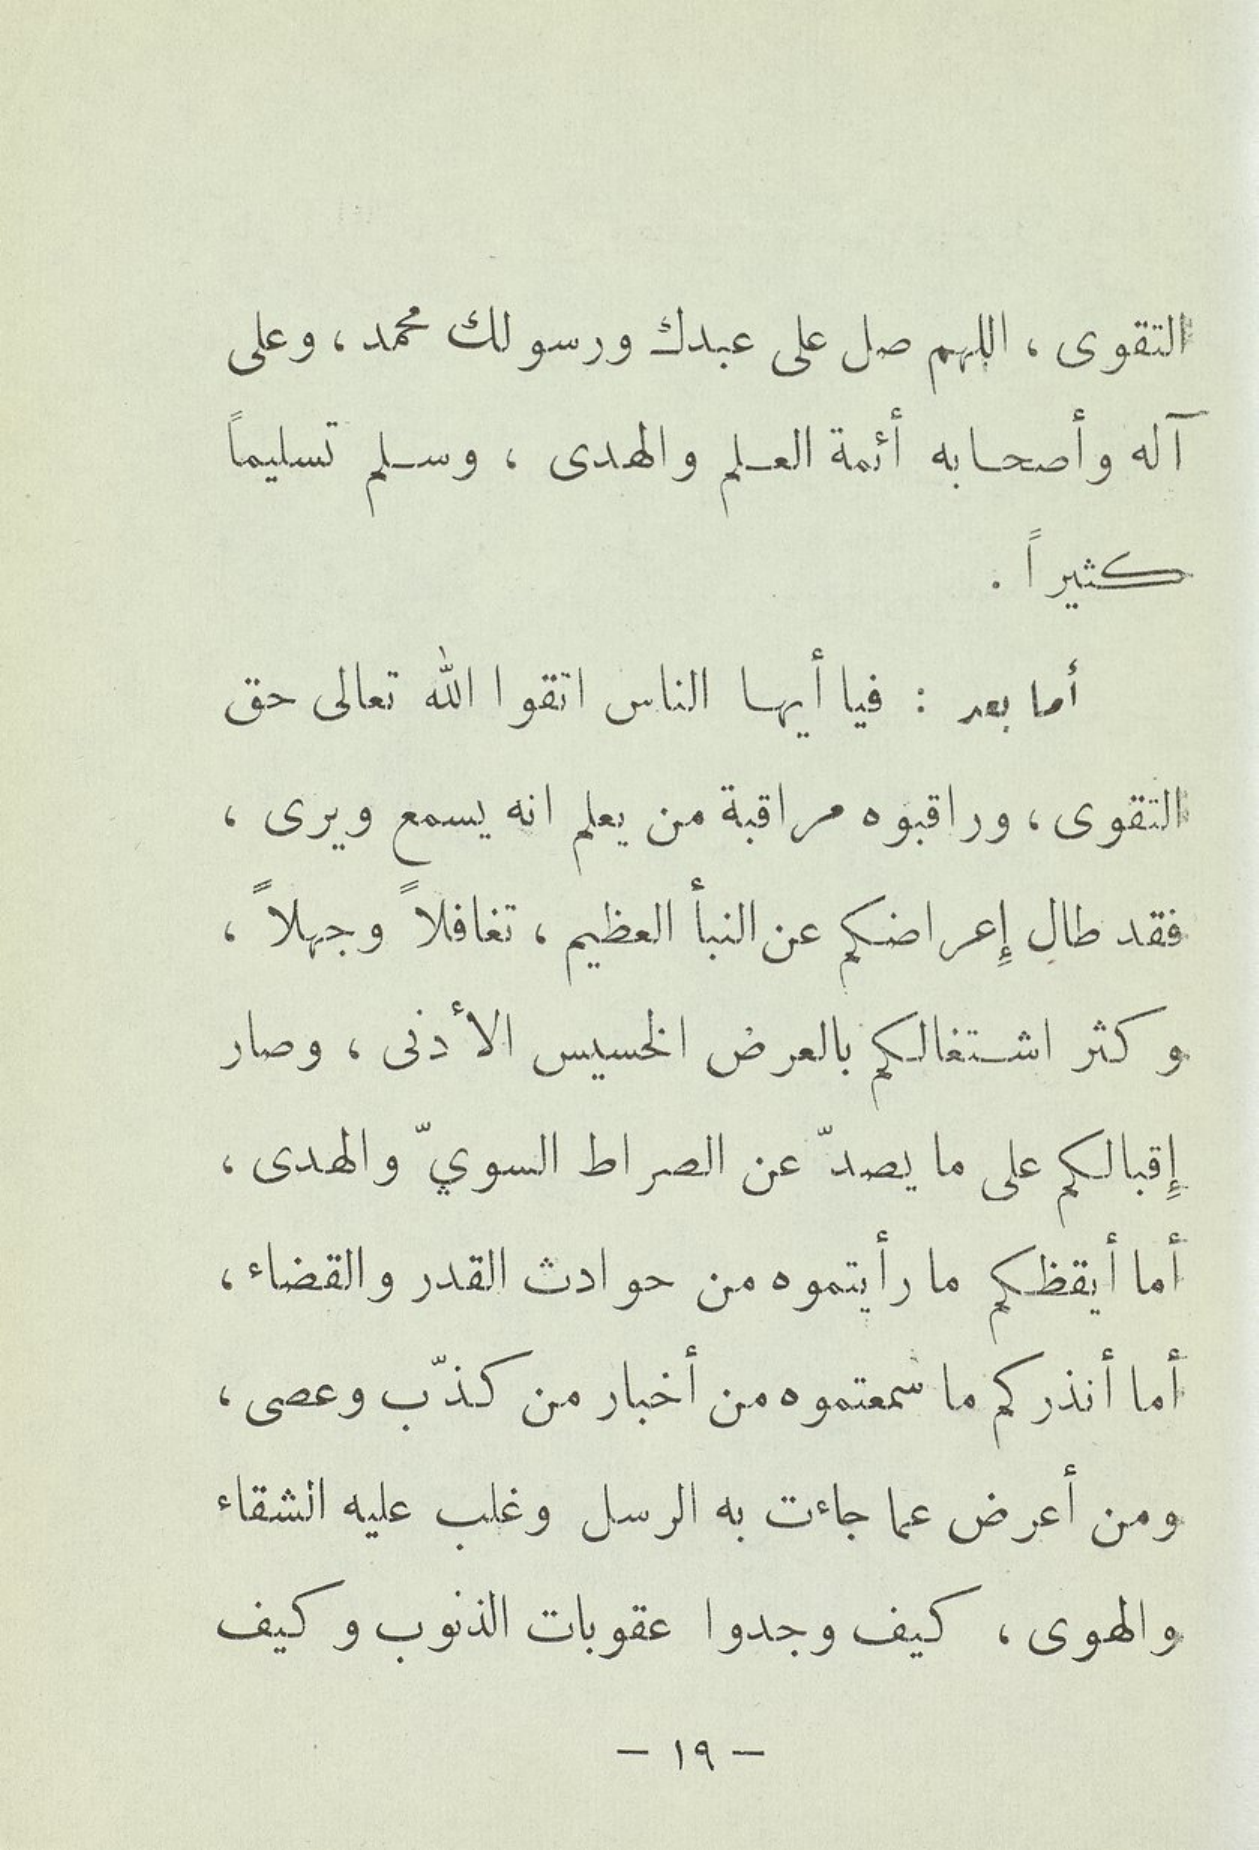 التقوى ، اللهم صل على عبدك ورسولك محمد ، وعلى
آله وأصحابه أئمة العلم والهدى ، وسلم تسليماً
كثيراً .
أما بعد : فيا أيها الناس اتقوا الله تعالى حق
التقوى ، وراقبوه مراقبة من يعلم انه يسمع ويرى ،
فقد طال إعراضكم عن النبأ العظيم ، تغافلاً وجهلاً ،
وكثر اشتغالكم بالعرض الخسيس الأدنى ، وصار
إقبالكم على ما يصدّ عن الصراط السويّ والهدى ،
أما أيقظكم ما رأيتموه من حوادث القدر والقضاء ،
أما أنذركم ما سمعتموه من أخبار من كذّب وعصى ،
ومن أعرض عما جاءت به الرسل وغلب عليه الشقاء
والهوى ، كيف وجدوا عقوبات الذنوب وكيف
— ١٩ —